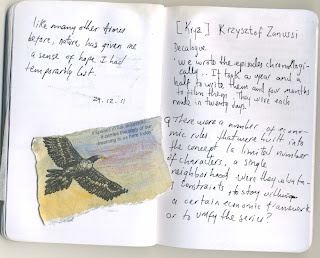 like many other times
before, nature has given me
a sense of hope I had
temporarily lost.
29.12.11
a certain
dreaming in us here today
[Kyja] Krzysztof Zanussi
Decalogue
we wrote the episodes chronologi-
cally.. It took a year and a
half to write them and four months
to film them. They were each
made in twenty days.
Q There were a number of econo-
mic rules that were built into
the concept (a limited number
of characters, a single
neighborhood were they volunta-
ry constraints to stay within
a certain economic framework
or to unify the series?